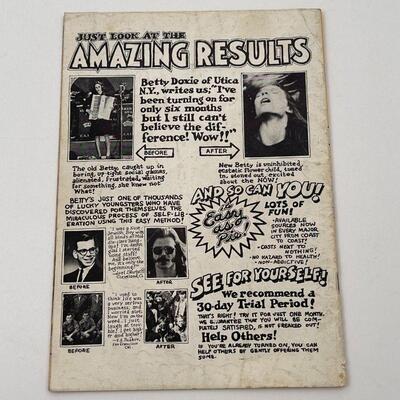 JUST LOOK AT THE
AMAZING RESULTS
Betty Doxie of Utica
N.Y., writes us; "I've
been turning on for
only six months
but I still can't
believe the dif-
ference! Wow!!"
BEFORE
AFTER
The old Betty, caught up in
boring, up-tight social games,
alienated, frustrated, waiting
for something, she knew not
What!
New Betty is uninhibited,
ecstatic flower child, tuned
in, stoned out, excited
about the NOW!
BETTY'S JUST ONE OF THOUSANDS
OF LUCKY YOUNGSTERS WHO HAVE
DISCOVERED FOR THEMSELVES THE
MIRACULOUS PROCESS OF SELF-LIB-
ERATION USING THE EASY METHOD!
AND SO CAN YOU!
It's
Easy
as
Pie!
LOTS OF
FUN!
- AVAILABLE
SOURCES NOW
IN EVERY MAJOR
CITY FROM COAST
TO COAST!
- COSTS NEXT TO
NOTHING!
- NO HAZARD TO HEALTH!
- NON-ADDICTIVE!
"I was a
only the
beginning."
BEFORE
AFTER
"I used to
think life
was a very
serious
business;
now I'm
just laugh
at troub-
les. I feel
BEFORE
AFTER
SEE FOR YOURSELF!
We recommend a
30-day Trial Period!
THAT'S RIGHT! TRY IT FOR JUST ONE MONTH.
WE GUARANTEE THAT YOU WILL BE COM-
PLETELY SATISFIED, IF NOT FREAKED OUT!
Help Others!
IF YOU'RE ALREADY TURNED ON, YOU CAN
HELP OTHERS BY GENTLY OFFERING THEM
SOME.